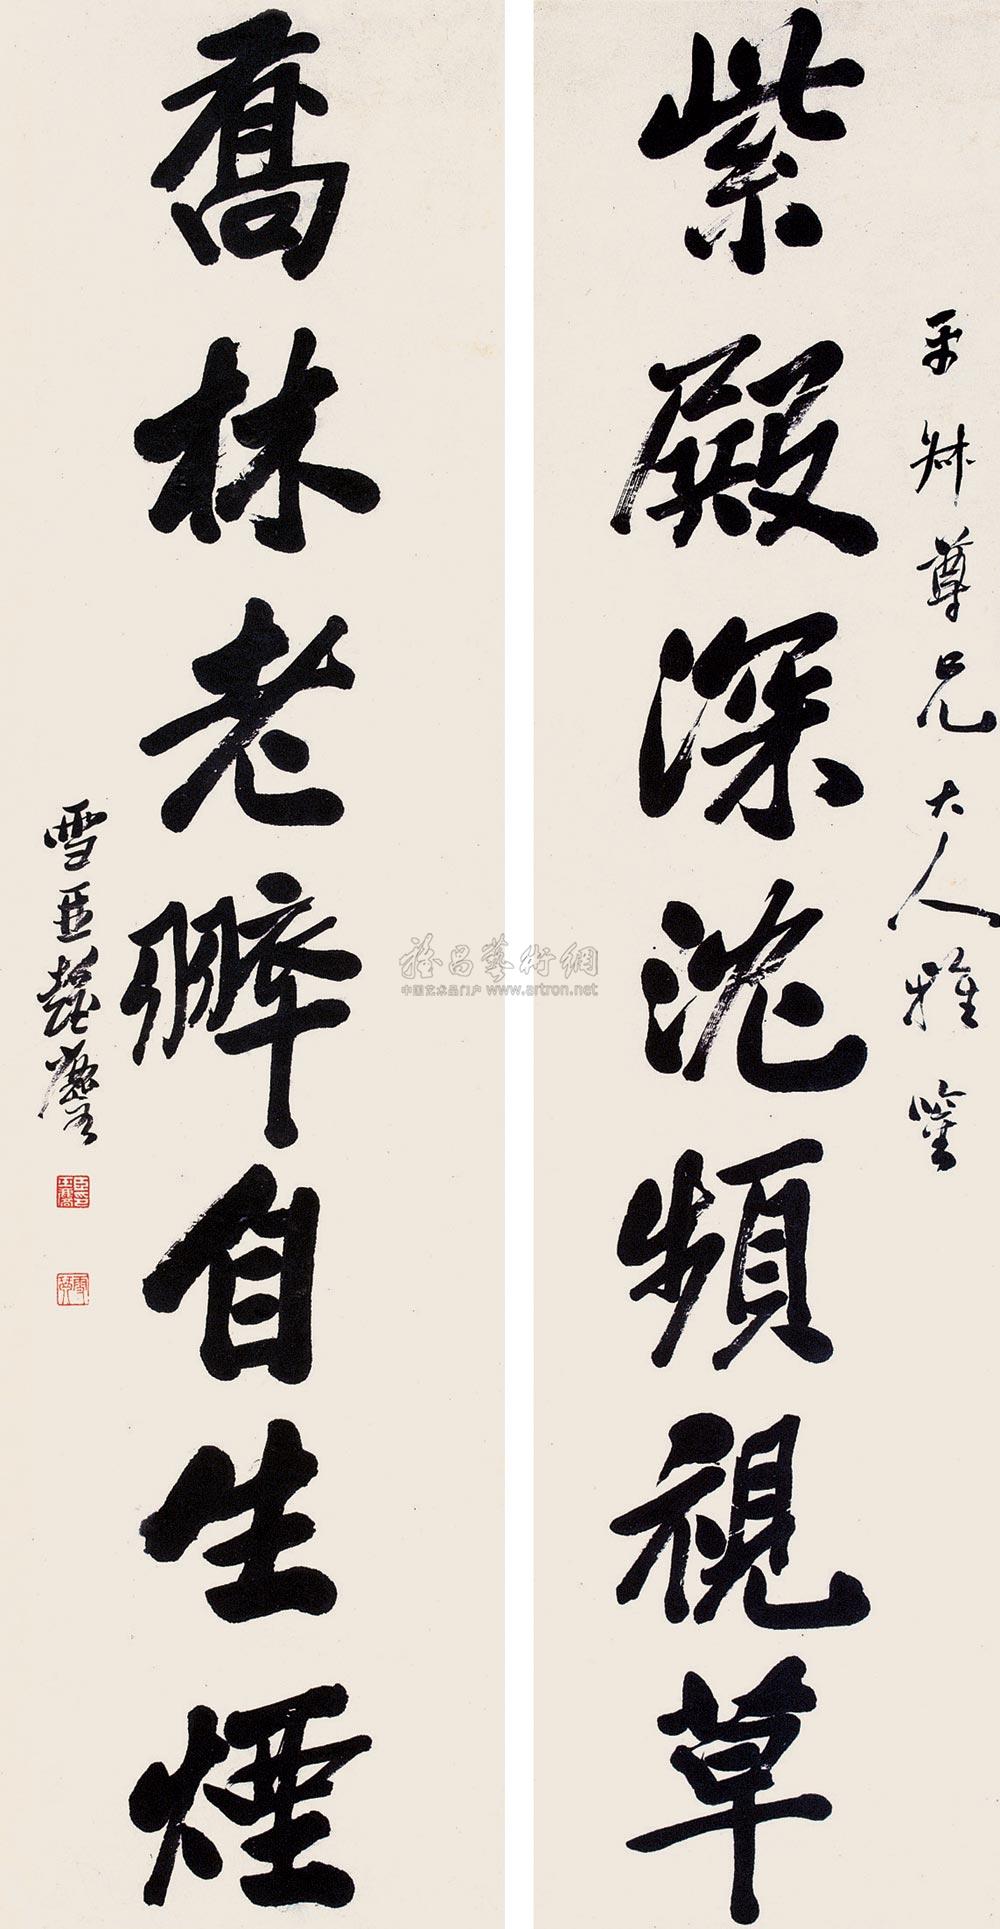 紫殿深沈頻視草
平叔尊兄大人雅鑒
喬林老
自生煙
雪琴彭玉麐
雅昌藝術網
中国艺术品门户 www.artron.net